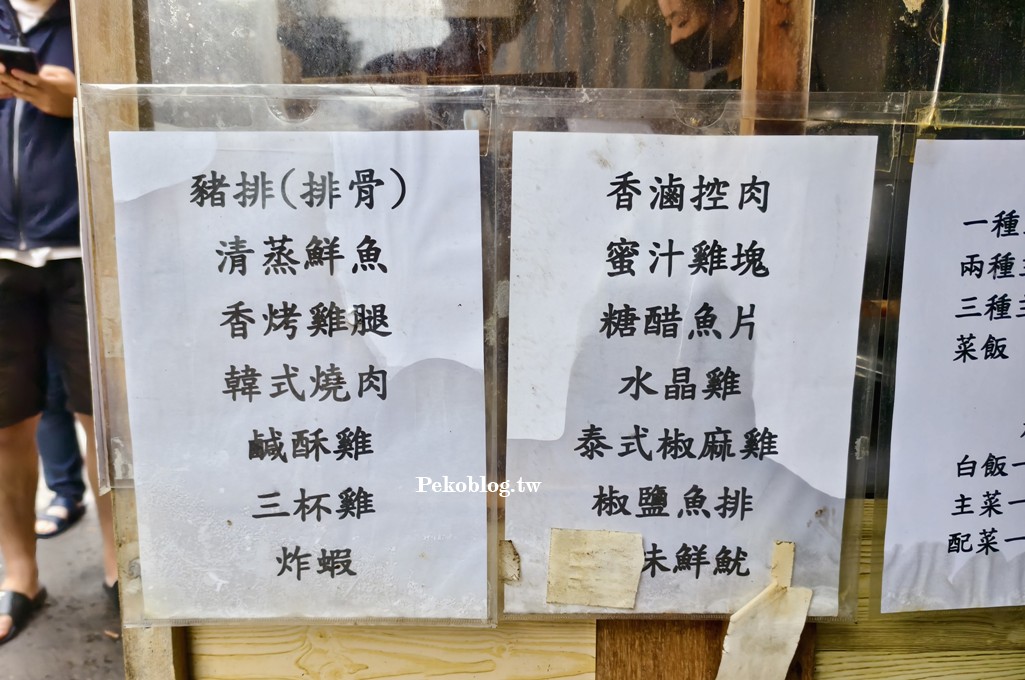 豬排(排骨)
清蒸鮮魚
香烤雞腿
韓式燒肉
鹹酥雞
三杯雞
炸蝦
香滷控肉
蜜汁雞塊
糖醋魚片
水晶雞
泰式椒麻雞
椒鹽魚排
味鮮魷
一種
兩種
三種
菜飯
白飯一
主菜一
配菜一
Pekoblog.tw